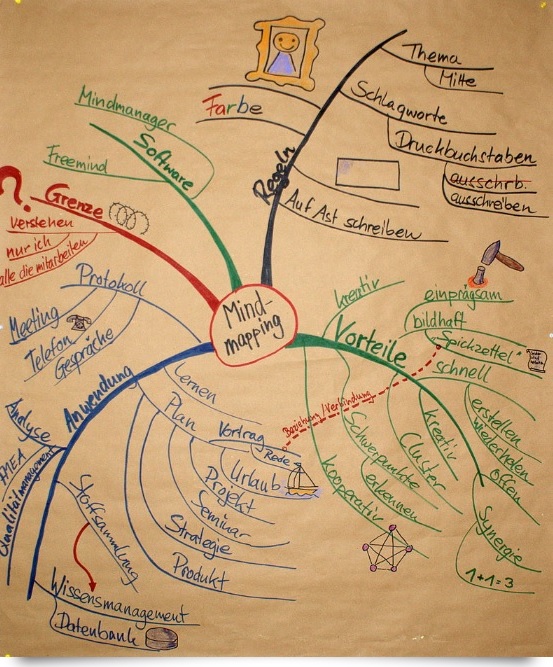 Mind-
mapping
Regeln
Thema
Mitte
Schlagworte
Druckbuchstaben
ausschrb.
ausschreiben
Auf Ast schreiben
Farbe
Software
Mindmanager
Freemind
Grenze
?
verstehen
nur ich
alle die mitarbeiten
Anwendung
Protokoll
Meeting
Telefon
Gespräche
lernen
Plan
Vortrag
Rede
Urlaub
Projekt
Seminar
Strategie
Produkt
Analyse
FMEA
Qualitätmanagement
Stoffsammlung
Wissensmanagement
Datenbank
Vorteile
kreativ
einprägsam
bildhaft
Spickzettel
schnell
erstellen
wiederholen
offen
Synergie
1+1=3
kreativ
Cluster
Schwerpunkte
erkennen
kooperativ
Beziehung/Verbindung